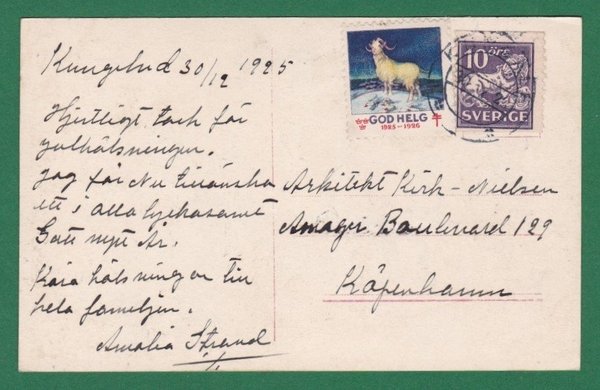 Kungelud 30/12 1925
Hjertligt tack för
julhälsningen.
Jag får Nu tillönska
ett i alla lyckosamt
Gott nytt År.
Kära hälsningar till
hela familjen.
Amalia Strand
GOD HELG
1925-1926
10 ÖRE
SVERIGE
Arkitekt Kirk-Nielsen
Amager Boulevard 129
Köpenhamn